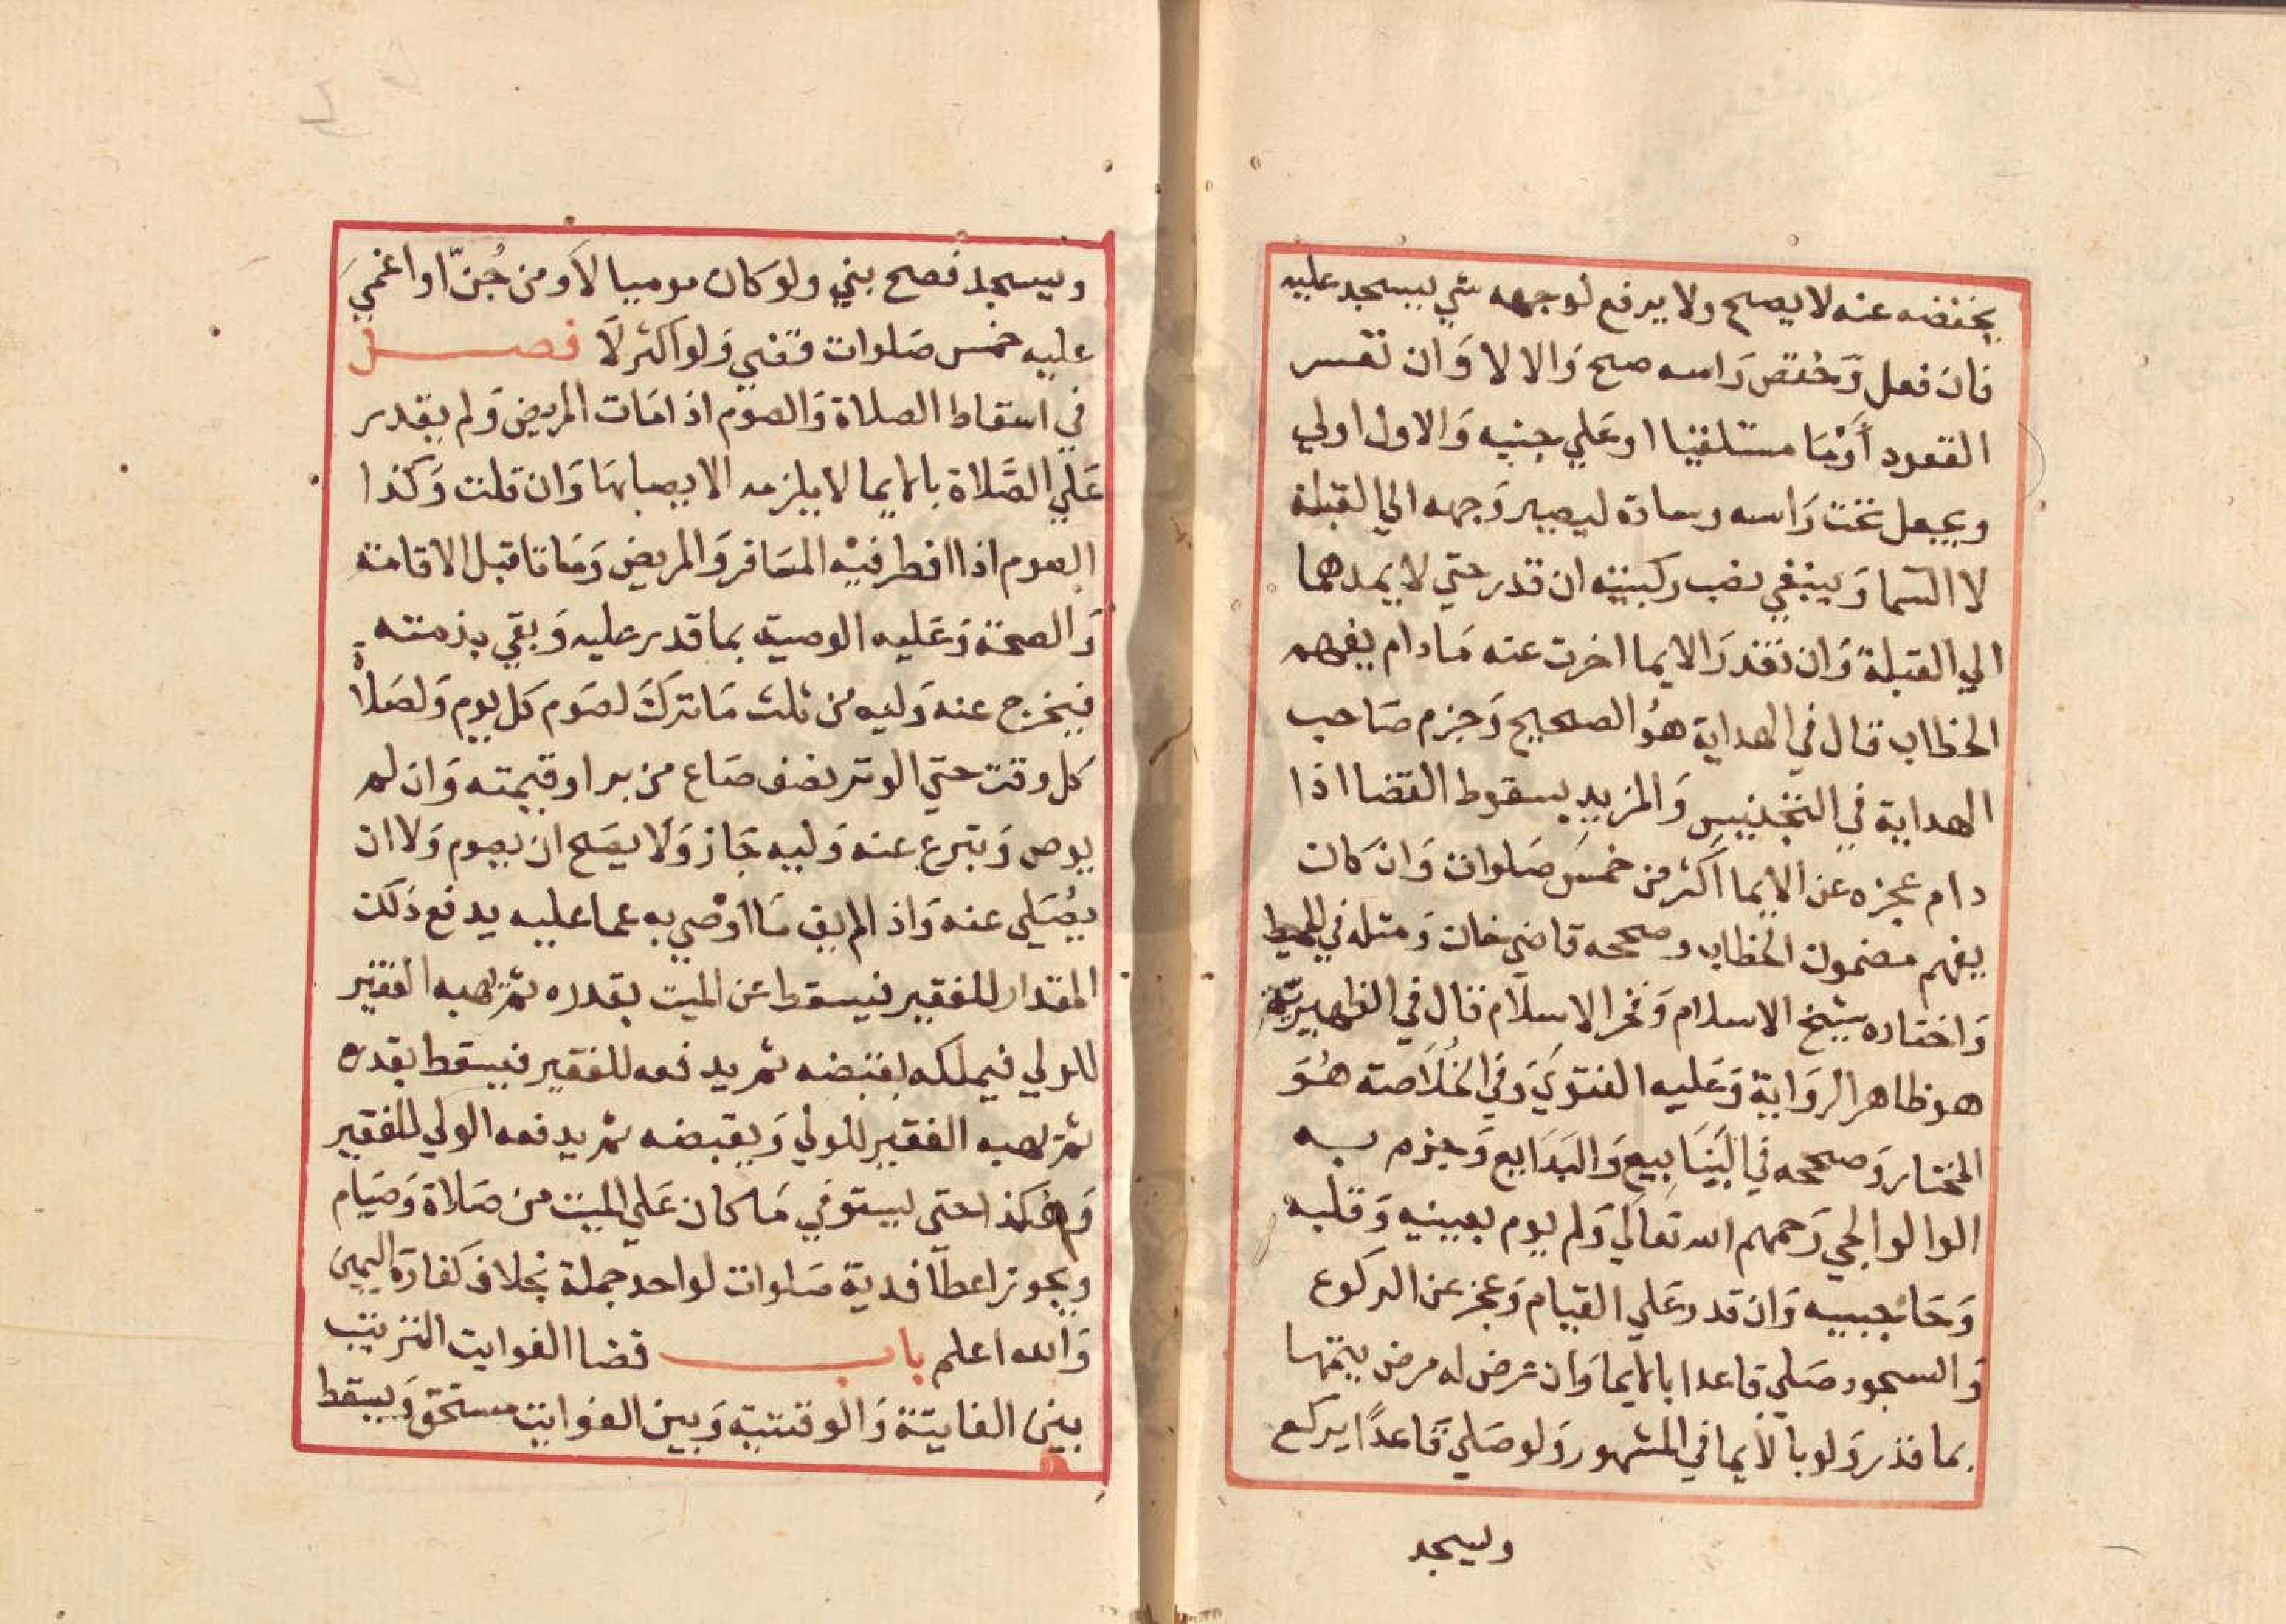 يخفضه عنه لا يصح ولا يرفع لوجهه شي يسجد عليه
فان فعل وخفض راسه صح والا لا وان تعسر
القعود أومَا مستلقيا او علي جنبه والاول اولي
ويجعل تحت راسه وسادة ليصير وجهه الي القبلة
لا السما وينبغي نصب ركبتيه ان قدر حتي لا يمدهما
الي القبلة وان تعذر الايما اخرت عنه ما دام يفهم
الخطاب قال في الهداية هو الصحيح وجزم صاحب
الهداية في التجنيس والمزيد بسقوط القضا اذا
دام عجزه عن الايما اكثر من خمس صلوات وان كان
يفهم مضمون الخطاب وصححه قاضي خان ومثله في المحيط
واختاره شيخ الاسلام وفخر الاسلام قال في الظهيرية
هو ظاهر الرواية وعليه الفتوي وفي الخلاصة هو
المختار وصححه في الينابيع والبدايع وجزم به
الوالوالجي رحمهم الله تعالي ولم يوم بعينيه وقلبه
وحاجبيه وان قدر علي القيام وعجز عن الركوع
والسجود صلي قاعدا بالايما وان عرض له مرض يتمها
بما قدر ولو بالايما في المشهور ولو صلي قاعدًا يركع
ويسجد
ويسجد فصح بني ولو كان موميا لا ومن جُنّ او اغمي
عليه خمس صلوات قضي ولو اكثر لا فصل
في اسقاط الصلاة والصوم اذا مات المريض ولم يقدر
علي الصَّلاة بالايما لا يلزمه الايصا بها وان قلت وكذا
الصوم اذا افطر فيه المسافر والمريض وماتا قبل الاقامة
والصحة وعليه الوصية بما قدر عليه وبقي بذمته
فيخرج عنه وليه من ثلث ما ترك لصوم كل يوم ولصلاة
كل وقت حتي الوتر نصف صاع من بر او قيمته وان لم
يوص وتبرع عنه وليه جاز ولا يصح ان يصوم ولا ان
يُصَلي عنه واذا لم يف ما اوْصي به عما عليه يدفع ذلك
المقدار للفقير فيسقط عن الميت بقدره ثم يهبه الفقير
للولي فيملكه بقبضه ثم يدفعه للفقير فيسقط بقدره
ثم يهبه الفقير للولي ويقبضه ثم يدفعه الولي للفقير
وهكذا حتي يستوفي ما كان علي الميت من صلاة وصيام
ويجوز اعطآ فدية صلوات لواحد جملة بخلاف كفارة اليمين
والله اعلم باب قضا الفوايت الترتيب
بين الفايتة والوقتية وبين الفوايت مستحق ويسقط